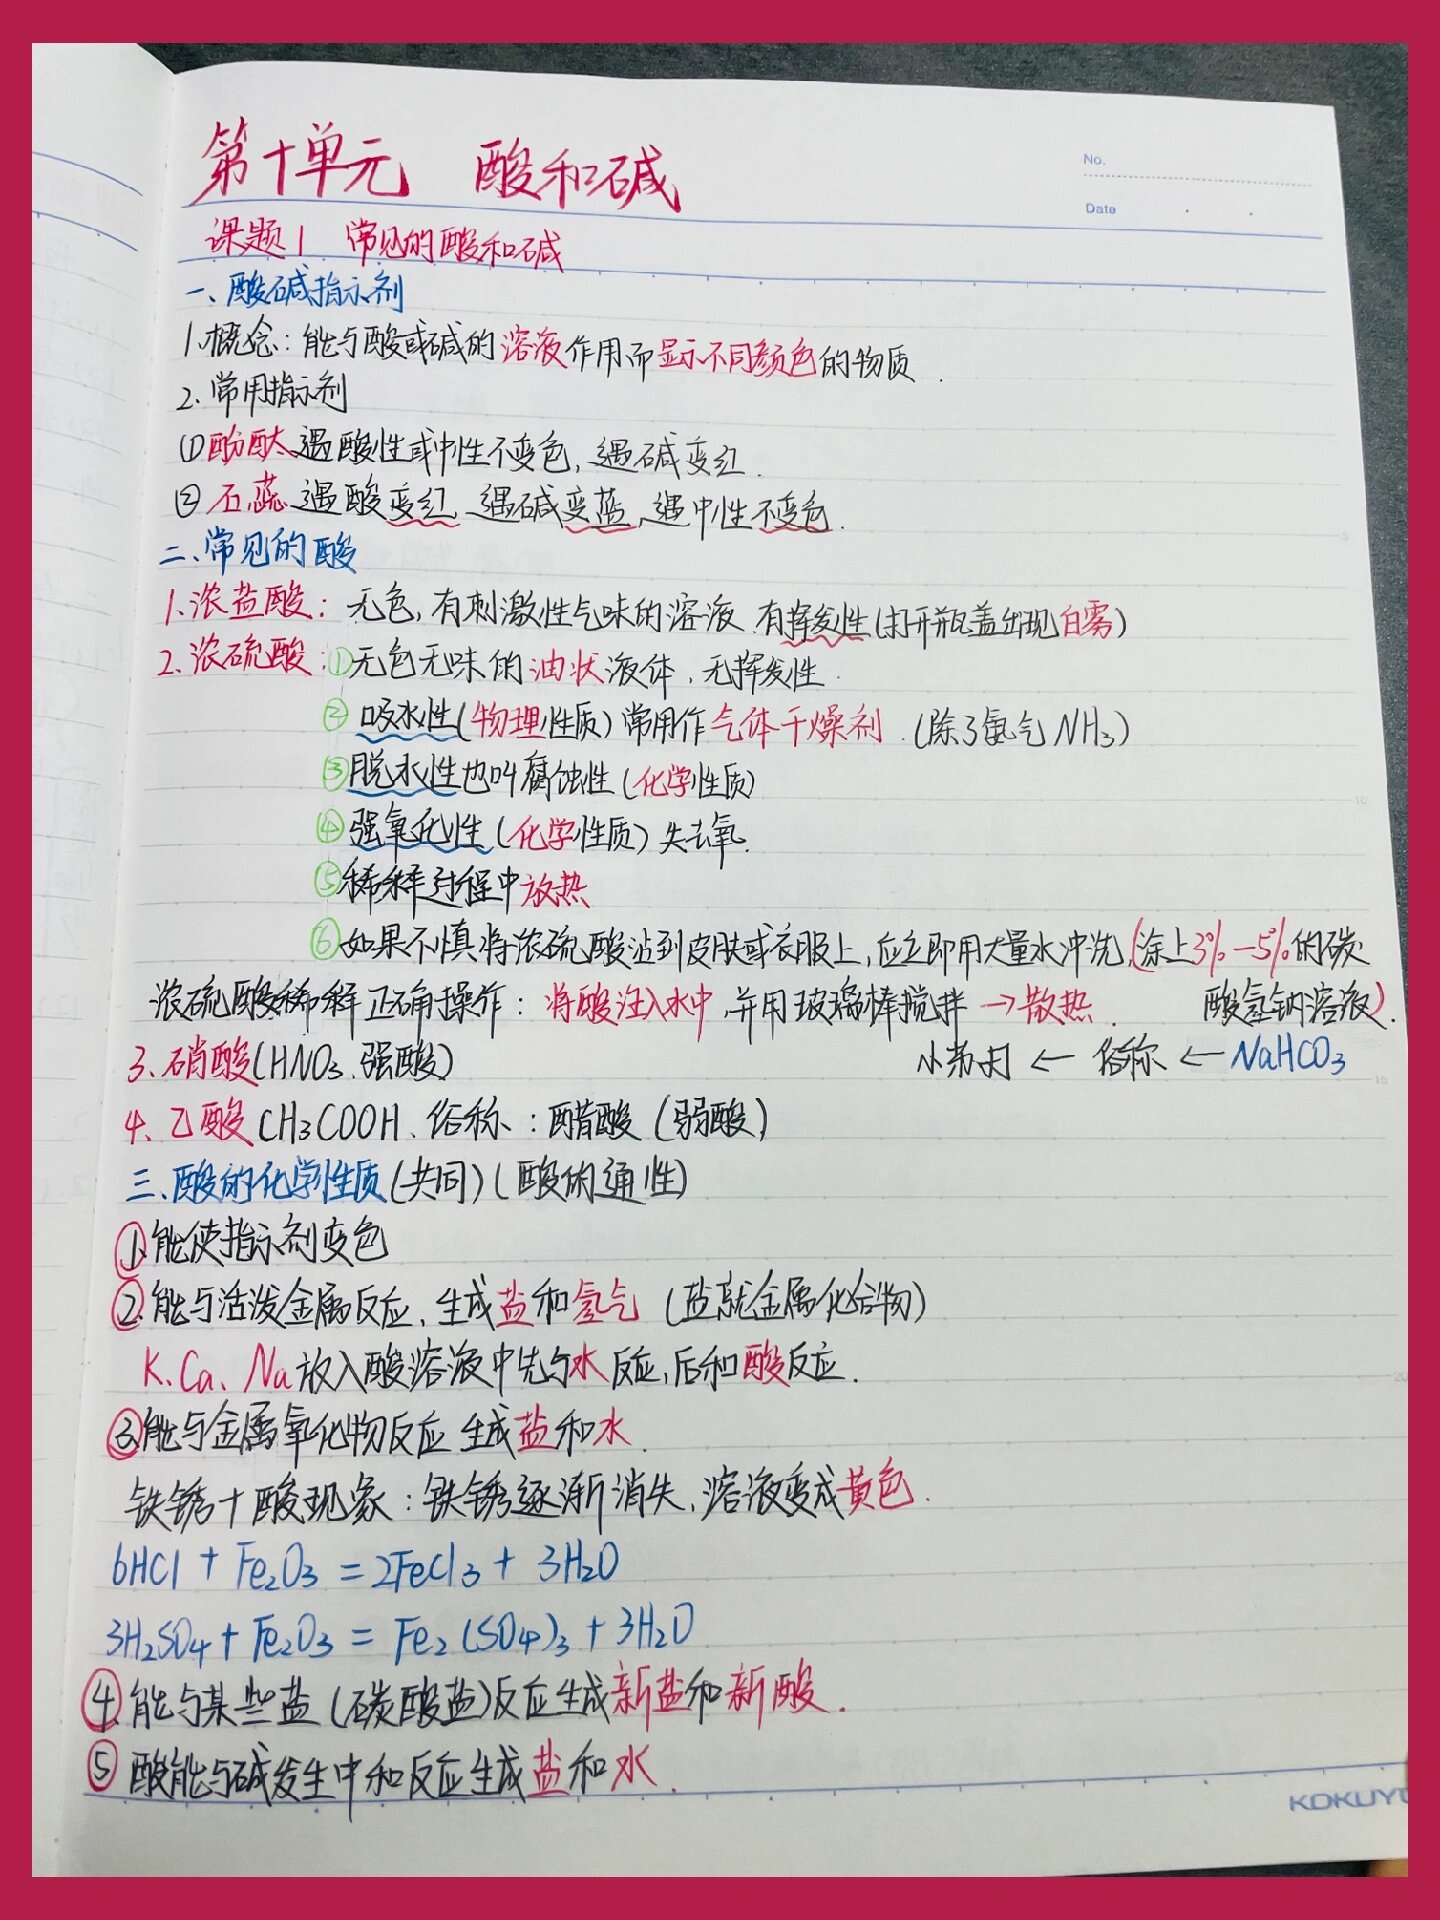 第十单元 酸和碱
No.
Date
课题1 常见的酸和碱
一、酸碱指示剂
1.概念:能与酸或碱的溶液作用而显示不同颜色的物质.
2.常用指示剂
①酚酞遇酸性或中性不变色,遇碱变红.
②石蕊遇酸变红,遇碱变蓝,遇中性不变色.
二、常见的酸
1.浓盐酸:无色,有刺激性气味的溶液.有挥发性(打开瓶盖出现白雾)
2.浓硫酸:①无色无味的油状液体,无挥发性.
②吸水性(物理性质)常用作气体干燥剂.(除了氨气NH₃)
③脱水性也叫腐蚀性(化学性质)
④强氧化性(化学性质)失去氧.
⑤稀释过程中放热
⑥如果不慎将浓硫酸沾到皮肤或衣服上,应立即用大量水冲洗,(涂上3%-5%的碳
酸氢钠溶液).
浓硫酸稀释正确操作:将酸注入水中,并用玻璃棒搅拌→散热.
小苏打←俗称←NaHCO₃
3.硝酸(HNO₃.强酸)
4.乙酸CH₃COOH.俗称:醋酸(弱酸)
三、酸的化学性质(共同)(酸的通性)
①能使指示剂变色
②能与活泼金属反应,生成盐和氢气(盐就金属化合物)
K、Ca、Na放入酸溶液中先与水反应,后和酸反应.
③能与金属氧化物反应生成盐和水.
铁锈+酸现象:铁锈逐渐消失,溶液变成黄色.
6HCl+Fe₂O₃=2FeCl₃+3H₂O
3H₂SO₄+Fe₂O₃=Fe₂(SO₄)₃+3H₂O
④能与某些盐(碳酸盐)反应生成新盐和新酸.
⑤酸能与碱发生中和反应生成盐和水.
KOKUYO